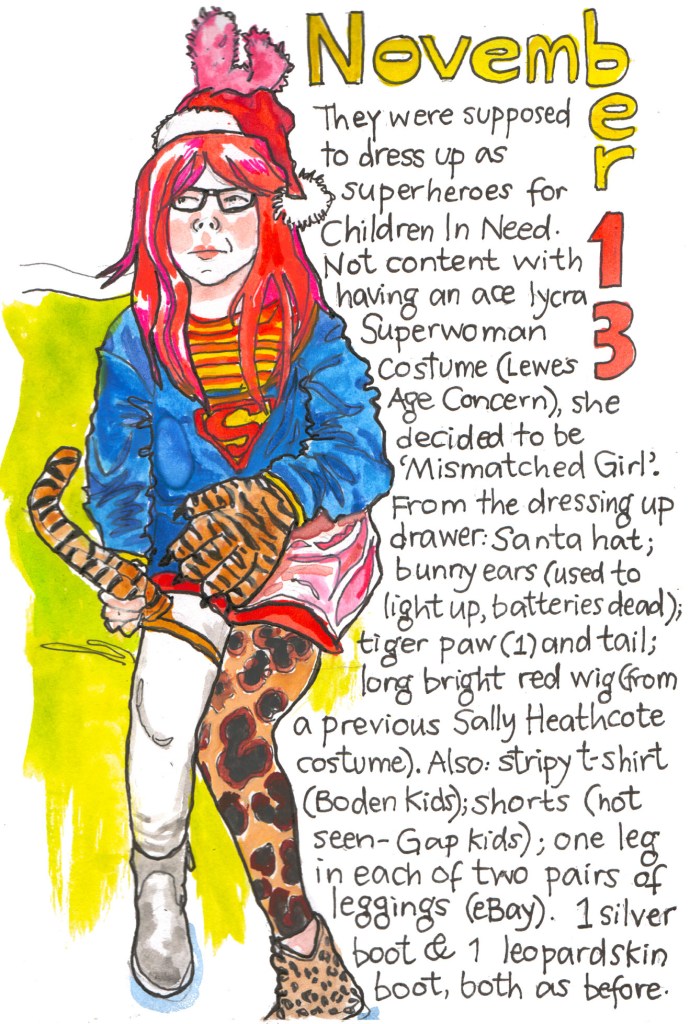 November
13
They were supposed
to dress up as
superheroes for
Children In Need.
Not content with
having an ace lycra
Superwoman
costume (Lewes
Age Concern), she
decided to be
'Mismatched Girl'.
From the dressing up
drawer: Santa hat;
bunny ears (used to
light up, batteries dead);
tiger paw (1) and tail;
long bright red wig (from
a previous Sally Heathcote
costume). Also: stripy t-shirt
(Boden Kids); shorts (not
seen - Gap kids); one leg
in each of two pairs of
leggings (eBay). 1 silver
boot & 1 leopardskin
boot, both as before.
S